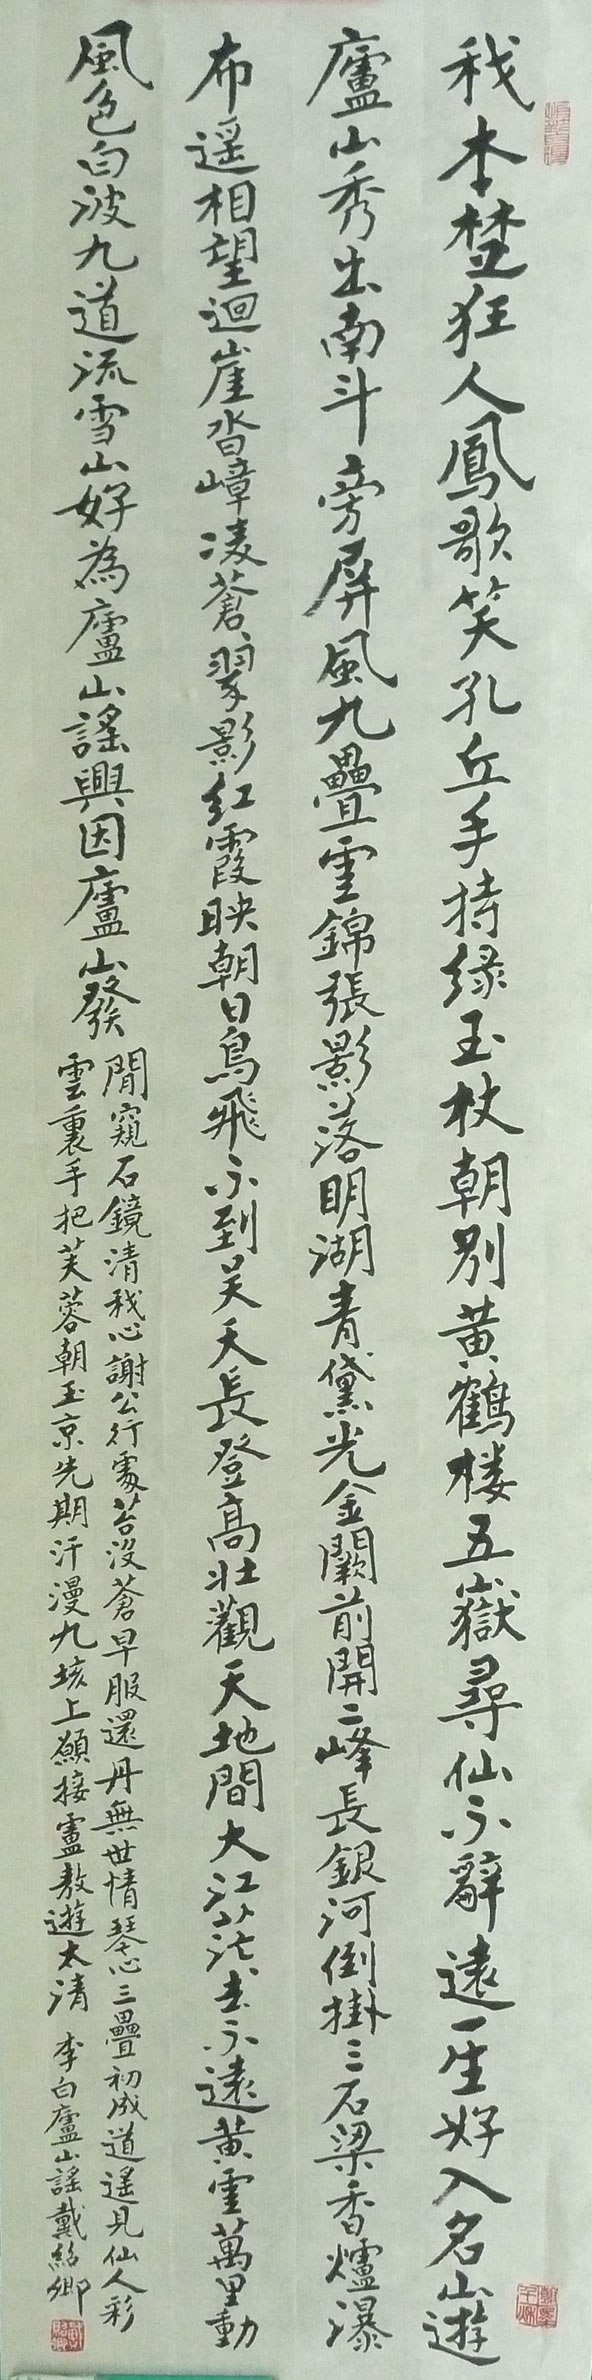 我本楚狂人鳳歌笑孔丘手持绿玉杖朝别黄鶴楼五嶽尋仙不辭遠一生好入名山遊
廬山秀出南斗旁屏風九疊雲錦張影落明湖青黛光金闕前開二峰長銀河倒掛三石梁香爐瀑
布遥相望迴崖沓嶂凌蒼、翠影红霞映朝日鳥飛不到吴天長登高壯觀天地間大江茫、去不還黄雲萬里動
風色白波九道流雪山好為廬山謠興因廬山發
閒窺石鏡清我心謝公行處苔没蒼早服還丹無世情琴心三疊初成道遥見仙人彩
雲裏手把芙蓉朝玉京先期汗漫九垓上願接盧敖遊太清 李白廬山謠戴紹卿